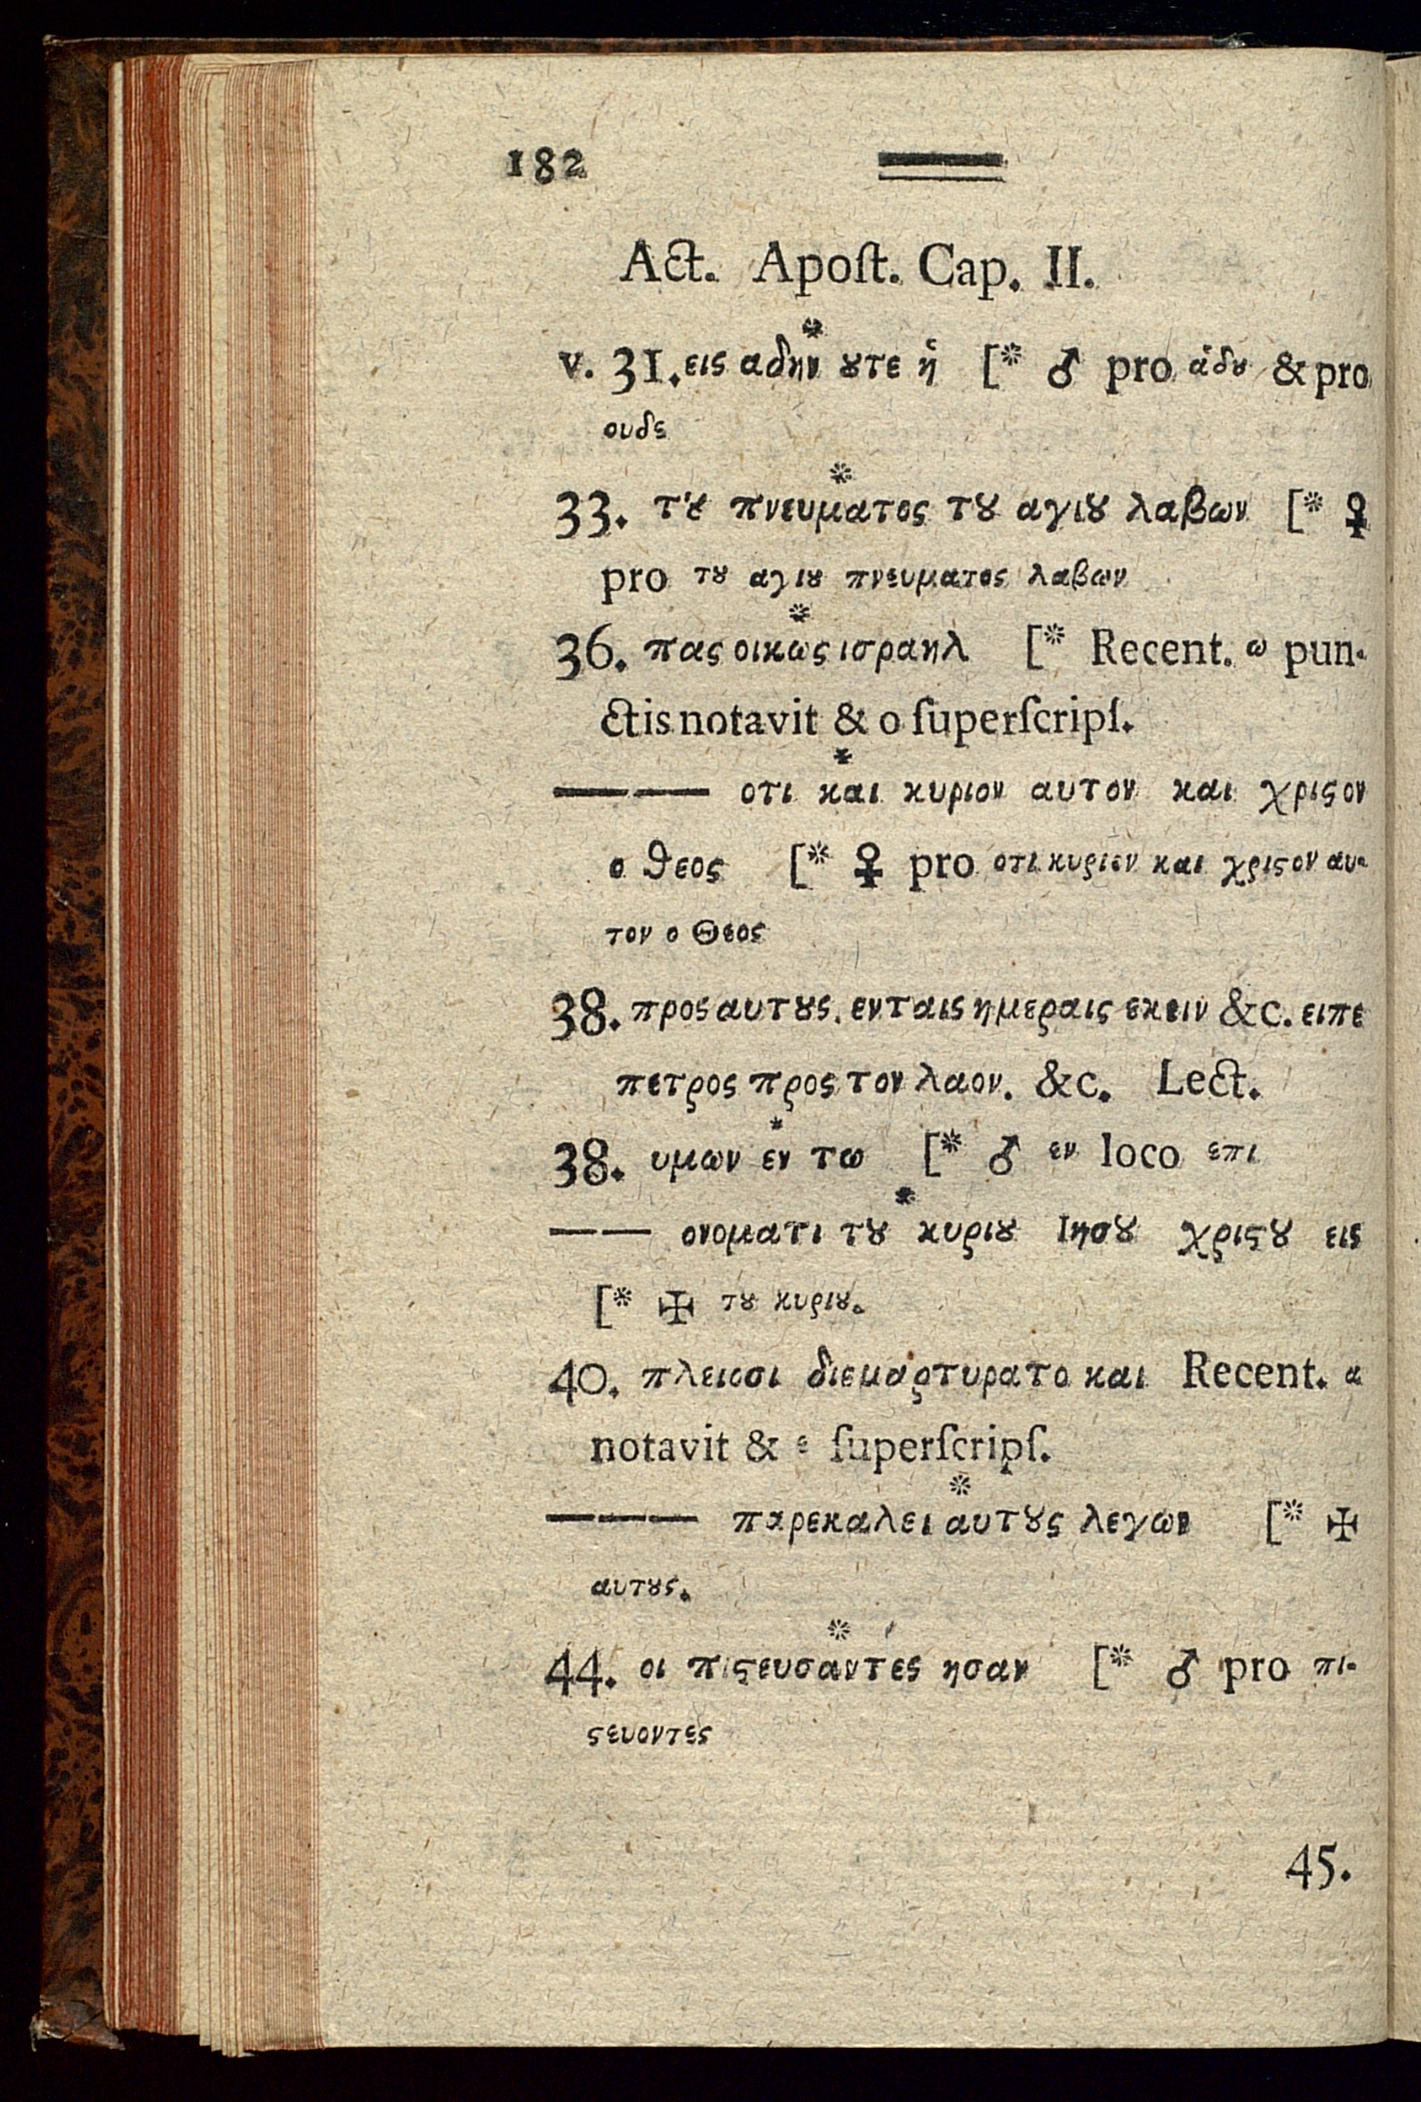 182
Act. Apoſt. Cap. II.
*
v. 31. εις αδην ȣτε ἡ [* ♂ pro ἁδȣ & pro
ουδε
*
33. τȣ πνευματος τȣ αγιȣ λαβων [* ♀
pro τȣ αγιȣ πνευματος λαβων
*
36. πας οικως ισραηλ [* Recent. ω pun-
ctis notavit & o ſuperſcripſ.
*
—— οτι και κυριον αυτον και χριϛον
ο θεος [* ♀ pro οτι κυριον και χριϛον αυ-
τον ο Θεος
38. προς αυτȣς. εν ταις ημεραις εκειν &c. ειπε
πετρος προς τον λαον. &c. Lect.
*
38. υμων εν τω [* ♂ εν loco επι
*
—— ονοματι τȣ κυριȣ Ιησȣ χριϛȣ εις
[* ✠ τȣ κυριȣ.
40. πλειοσι διεμαρτυρατο και Recent. α
notavit & ε ſuperſcripſ.
*
—— παρεκαλει αυτȣς λεγων [* ✠
αυτȣς.
*
44. οι πιϛευσαντες ησαν [* ♂ pro πι-
ϛευοντες
45.